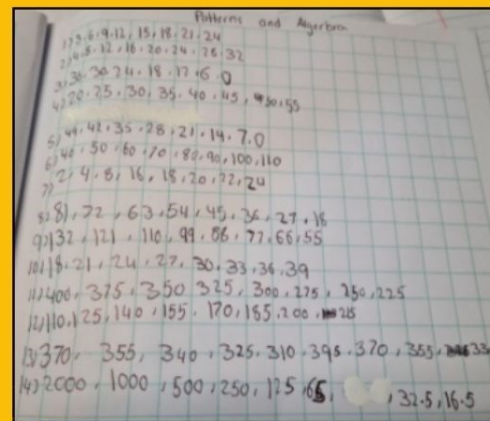 Patterns and Algerbra
1) 3.6.9.12, 15.18.21.24
2) 4.8.12, 16.20.24.28.32
3) 36.30 24.18.12.6.0
4) 20.25.30, 35.40.45, 50.55
5) 49.42.35.28.21.14.7.0
6) 40.50.60.70.80.90,100,110
7) 2,4.8,16,18,20,22,24
8) 81,72,63.54,45.36,27.18
9) 132,121,110,99.88,77.66,55
10) 18.21,24,27,30.33.36.39
11) 400,375,350 325,300,275,250,225
12) 110,125,140,155.170,185,200
13) 370,355,340,325.310.395.370,355
14) 2000,1000,500,250,125, ,32.5,16.5